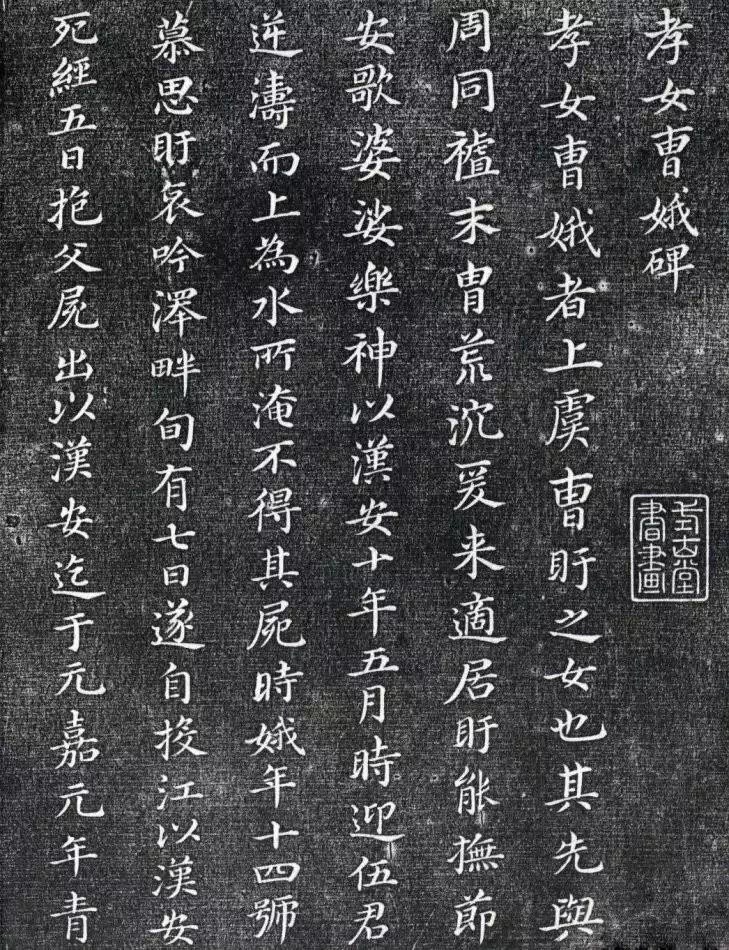 孝女曹娥碑
孝女曹娥者上虞曹盱之女也其先與
周同禮末胄荒沉爰来適居盱能撫節
安歌婆娑樂神以漢安十年五月時迎伍君
逆濤而上為水所淹不得其屍時娥年十四號
慕思盱哀吟澤畔旬有七日遂自投江以漢安
死經五日抱父屍出以漢安迄于元嘉元年青